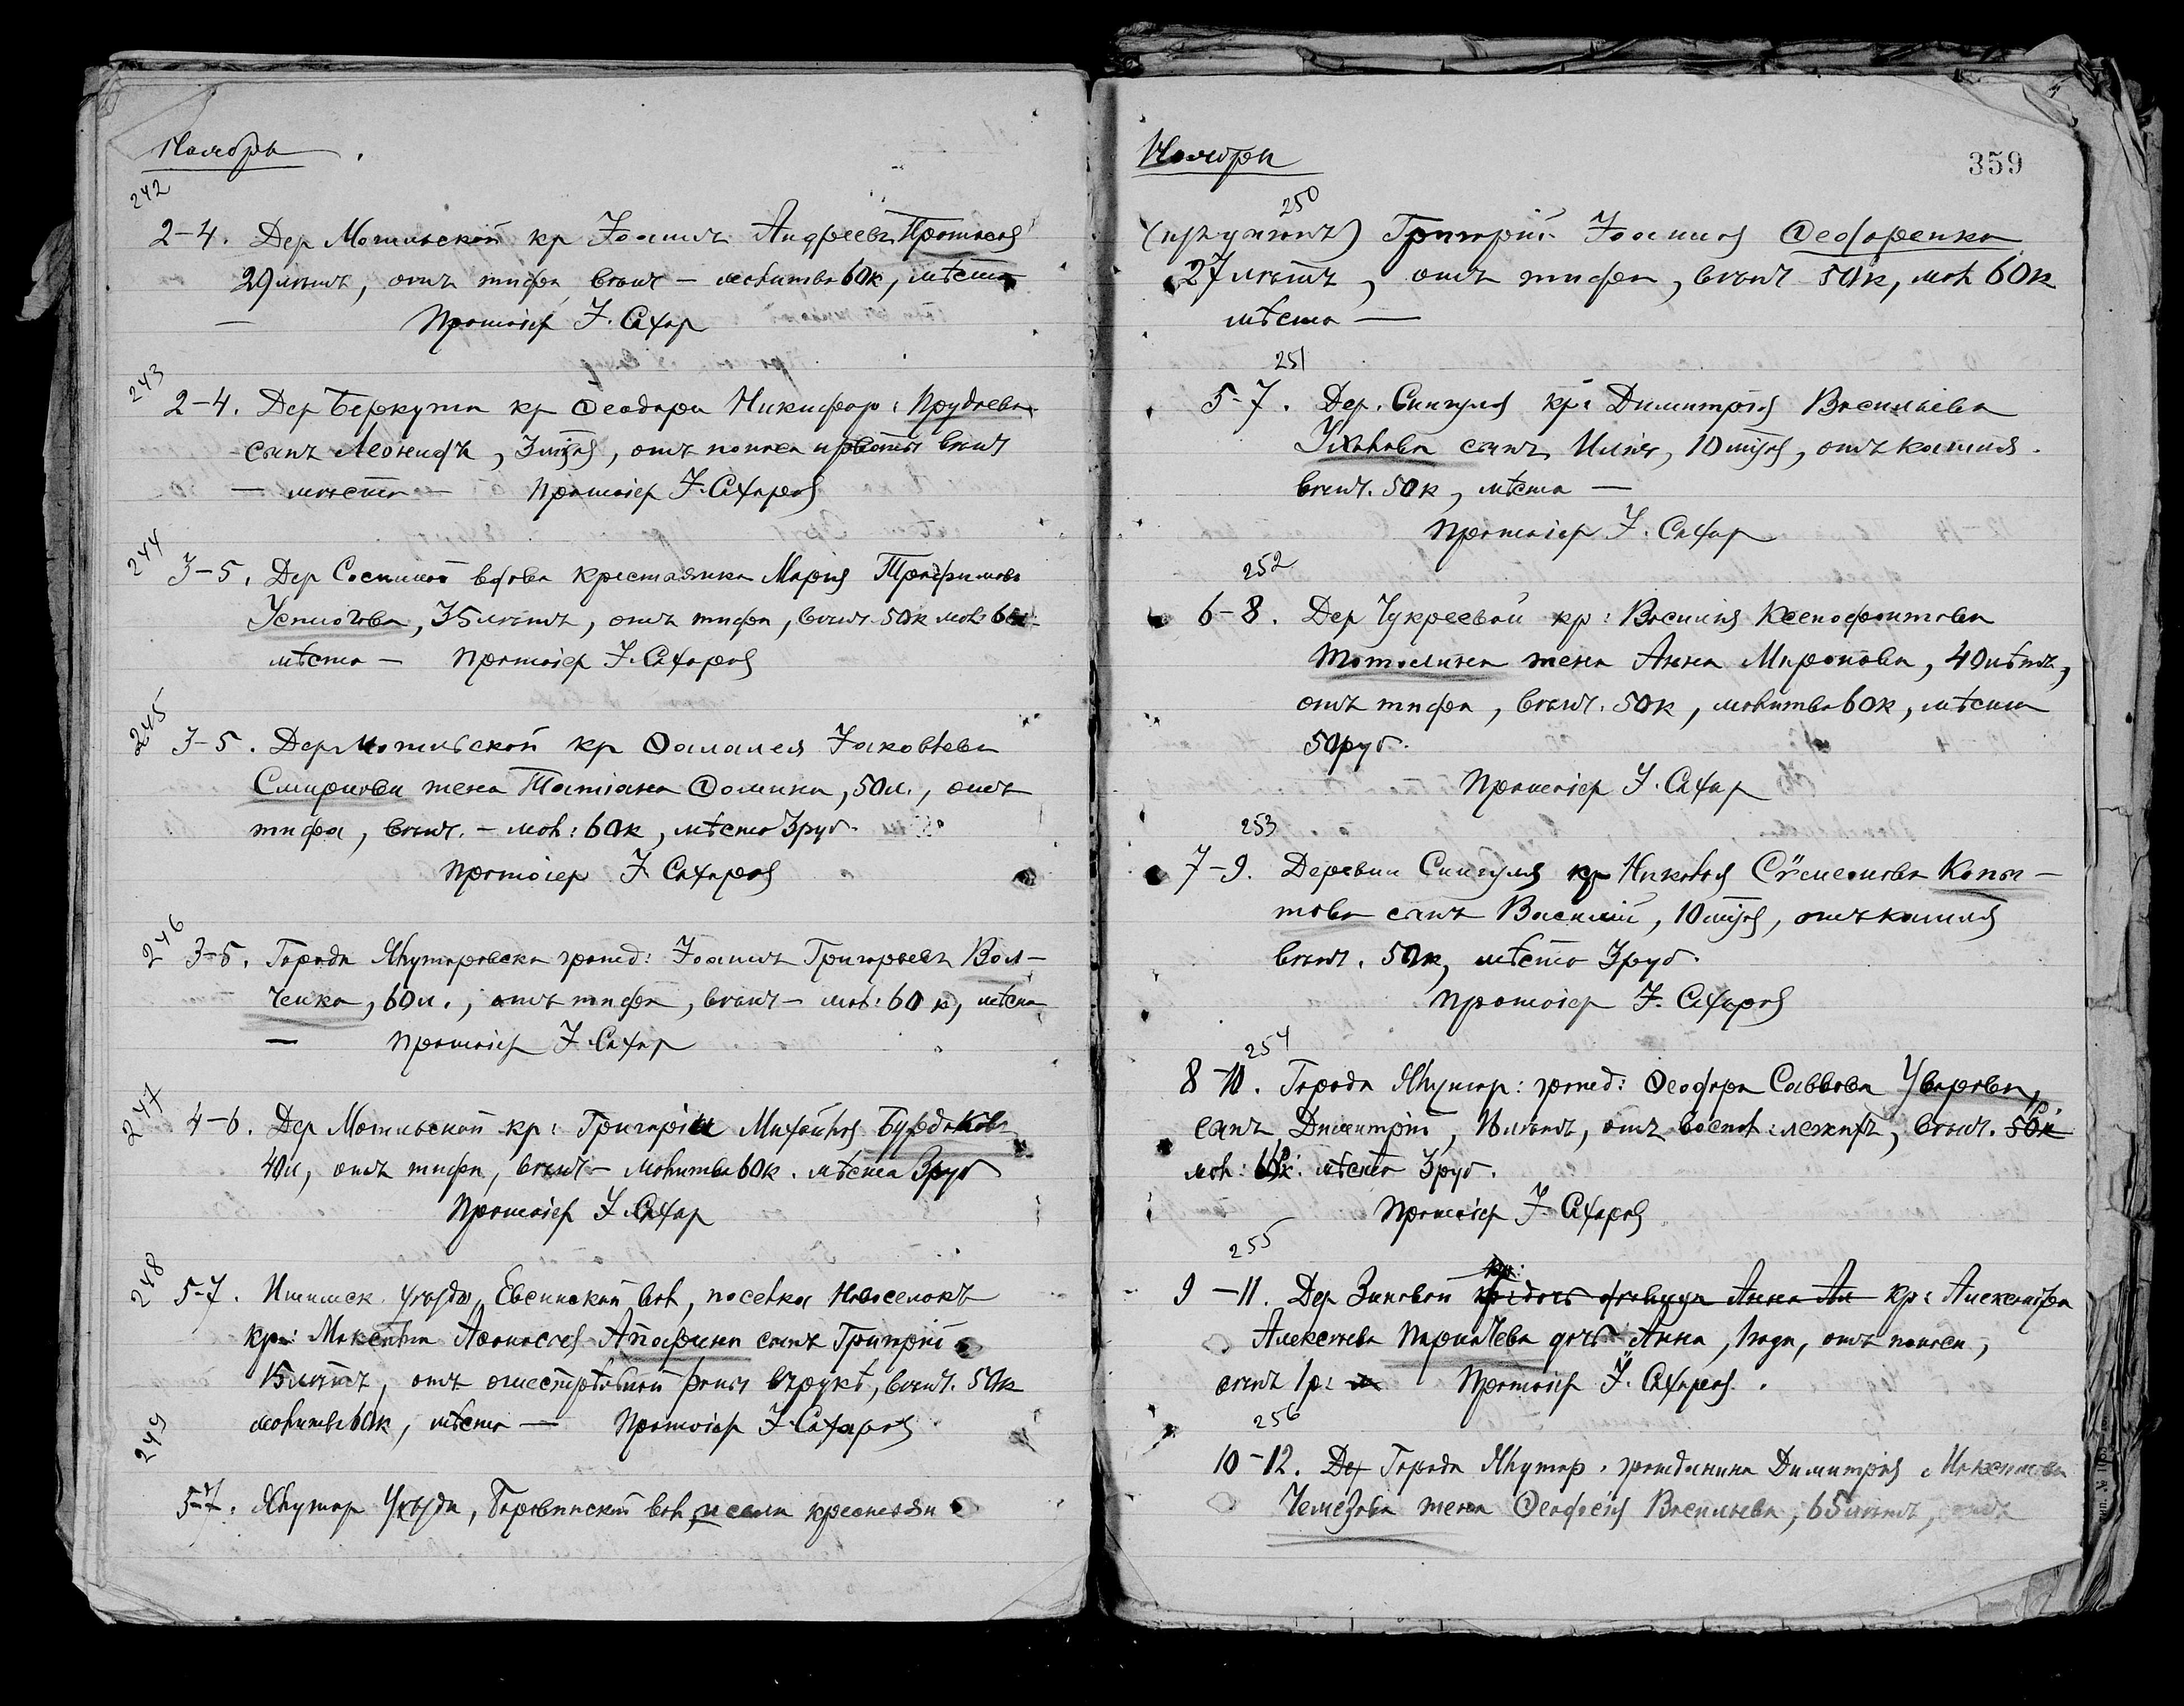 Ноябрь
242
2-4. Дер Мотильской кр Іоаннъ Андреевъ Протасов
29 лѣтъ, отъ тифа вѣнч — молитва 60к, мѣсто
— Протоіер І. Сахар
243
2-4. Дер Беркутa кр Ѳеодора Никифоро: Прудаева
сынъ Леонидъ, 3 мѣс, отъ поноса и рвоты вѣнч
— мѣсто — Протоіер І. Сахаров
244
3-5. Дер Сосниной вдова крестьянка Марія Трофимова
35 лѣтъ, отъ тифа, вѣнч. 50к мол 60к
мѣсто — Протоіер І. Сахаров
245
3-5. Дер Мотильской кр Ѳалалея Іаковлева
Смирнова жена Татіана Ѳомина, 50 л., отъ
тифа, вѣнч. — мол: 60к, мѣсто 3 руб.
Протоіер І. Сахаров
246
3-5. Города Ялуторовска гражд: Іоаннъ Григорьевъ Вол-
ченко, 60 л., отъ тифа, вѣнч — мол: 60 к, мѣсто
— Протоіер І. Сахар
247
4-6. Дер Мотильской кр: Григорій Михайлов Бурдаков
40 л, отъ тифа, вѣнч — молитва 60к. мѣсто 3 руб
Протоіер І. Сахар
248
5-7. Ишимск. уѣзда, Евсинской вол, поселка Новоселокъ
кр: Максима Аѳанасьев сынъ Григорій
15 лѣтъ, отъ огнестрѣльной раны въ рукѣ, вѣнч. 50к
молитва 60к, мѣсто — Протоіер І. Сахаров
249
5-7. Ялутор уѣзда, Боровинской вол и села крестьян
Ноябрь
359
250
Григорій Іоаннов Ѳедоренко
27 лѣтъ, отъ тифа, вѣнч 50к, мол 60к
мѣсто —
251
5-7. Дер. Сингуля кр: Димитрія Васильева
Ушакова сынъ Илія, 10 мѣс, отъ кашля.
вѣнч. 50к, мѣсто —
Протоіер І. Сахар
252
6-8. Дер Чукреевой кр: Василія Ксенофонтова
Тотолина жена Анна Миронова, 40 лѣтъ,
отъ тифа, вѣнч. 50к, молитва 60к, мѣсто
50 руб.
Протоіер І. Сахар
253
7-9. Деревни Сингуля кр Николая Сѵмеонова Копы-
това сынъ Василій, 10 мѣс, отъ кашля
вѣнч. 50к, мѣсто 3 руб.
Протоіер І. Сахаров
254
8-10. Города Ялутор: гражд: Ѳеодора Саввова Уварова,
сынъ Димитрій, лѣтъ, отъ воспал: легкихъ, вѣнч.
мол: мѣсто 3 руб.
Протоіер І. Сахаров
255
9-11. Дер Зиновой кр: Александра
Алексѣева дочь Анна, 1 года, отъ поноса,
вѣнч 1р: Протоіер І. Сахаров.
256
10-12. Города Ялутор. гражданина Димитрія Максимова
Чемезова жена Ѳеодосія Васильева, 65 лѣтъ, отъ